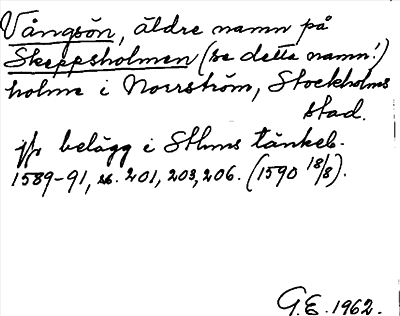 Vångsön, äldre namn på
Skeppsholmen (se detta namn!)
holme i Norrström, Stockholms
stad.
jfr belägg i Sthms tänkeb.
1589-91, s. 201, 203, 206. (1590 18/8).
G.E. 1962.